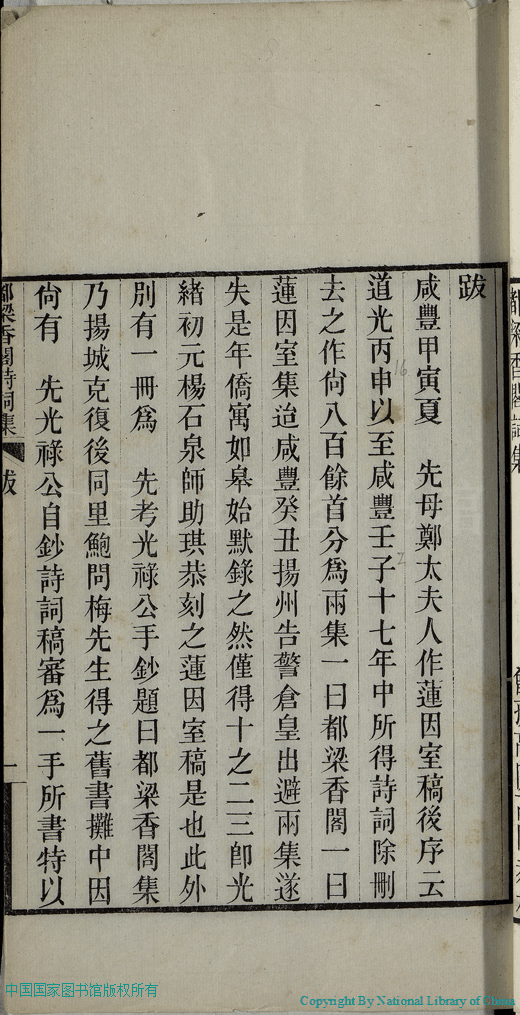 跋
咸豐甲寅夏　先母鄭太夫人作蓮因室稿後序云
道光丙申以至咸豐壬子十七年中所得詩詞除刪
去之作尙八百餘首分爲兩集一曰都梁香閣一曰
蓮因室集迨咸豐癸丑揚州告警倉皇出避兩集遂
失是年僑寓如皋始默錄之然僅得十之二三卽光
緒初元楊石泉師助琪恭刻之蓮因室稿是也此外
別有一冊爲　先考光祿公手鈔題曰都梁香閣集
乃揚城克復後同里鮑問梅先生得之舊書攤中因
尙有　先光祿公自鈔詩詞稿審爲一手所書特以
都梁香閣詩詞集
跋
一
16
中国国家图书馆版权所有
Copyright By National Library of China